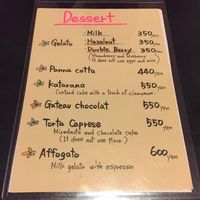 Dessert
Milk 350yen
Gelato Hazelnut 350yen
Double Berry 350yen
(Strawberry and blueberry)
it does not use eggs and milk
Panna cotta 440yen
Katarana 550yen
Custard cake with a touch of cinnamon
Gateau chocolat 550yen
Torta Caprese 550yen
Mixednuts and chocolate cake
(It does not use flour)
Affogato 600yen
Milk gelato with espresso